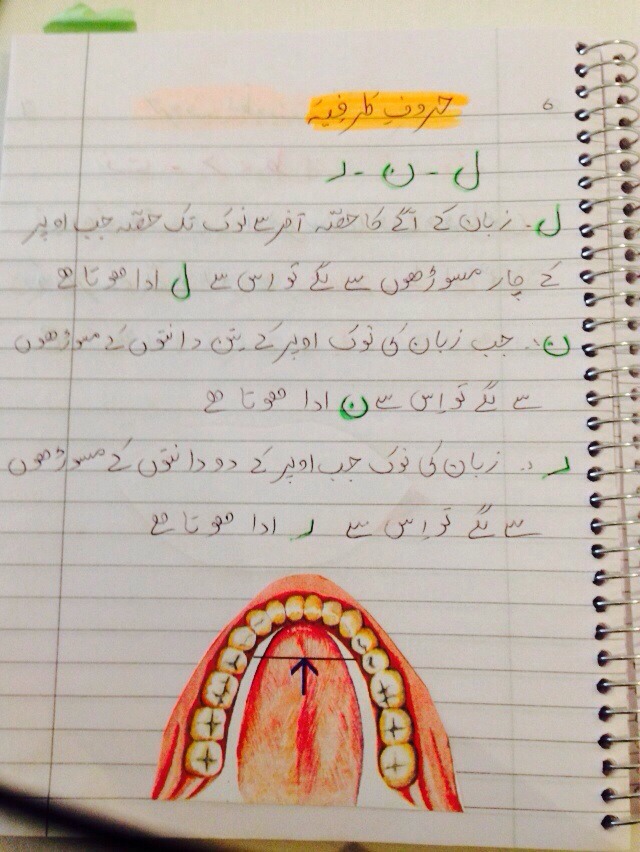 6
حروفِ طرفیہ
ل - ن - ر
ل۔ زبان کے آگے کا حصّہ آخر سے نوک تک حصّہ جب اوپر
کے چار مسوڑھوں سے لگے تو اِس سے ل ادا ہوتا ہے
ن:۔ جب زبان کی نوک اوپر کے تین دانتوں کے مسوڑھوں
سے لگے تو اِس سے ن ادا ہوتا ہے
ر:۔ زبان کی نوک جب اوپر کے دو دانتوں کے مسوڑھوں
سے لگے تو اِس سے ر ادا ہوتا ہے